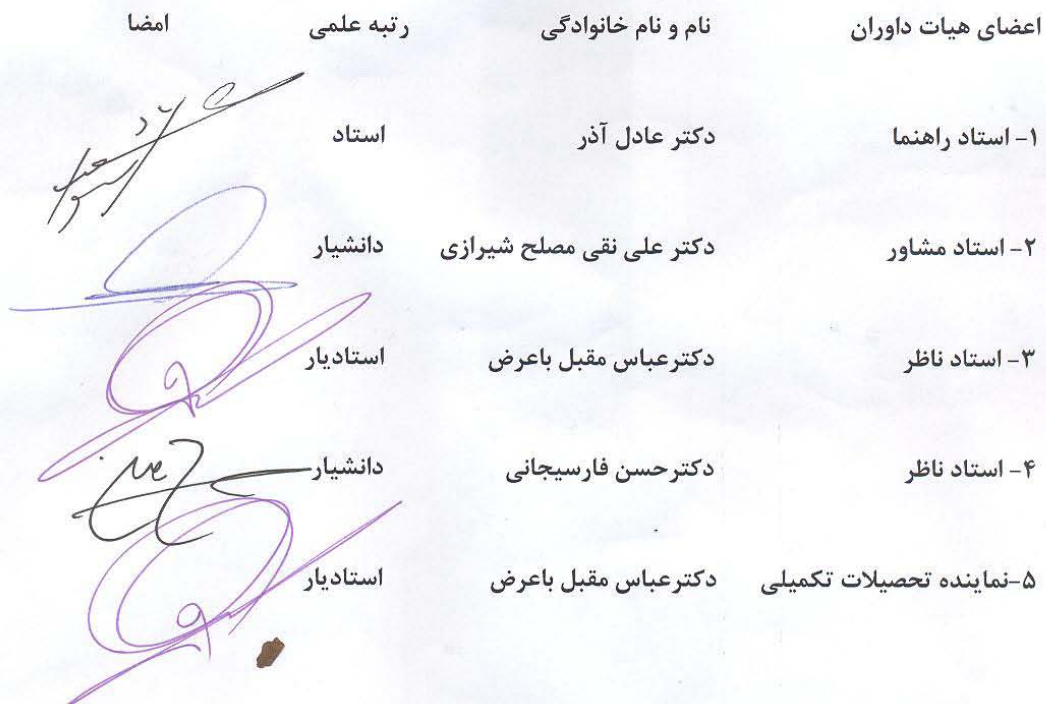 اعضای هیات داوران نام و نام خانوادگی رتبه علمی امضا
۱- استاد راهنما دکتر عادل آذر استاد
۲- استاد مشاور دکتر علی نقی مصلح شیرازی دانشیار
۳- استاد ناظر دکترعباس مقبل باعرض استادیار
۴- استاد ناظر دکترحسن فارسیجانی دانشیار
۵-نماینده تحصیلات تکمیلی دکترعباس مقبل باعرض استادیار